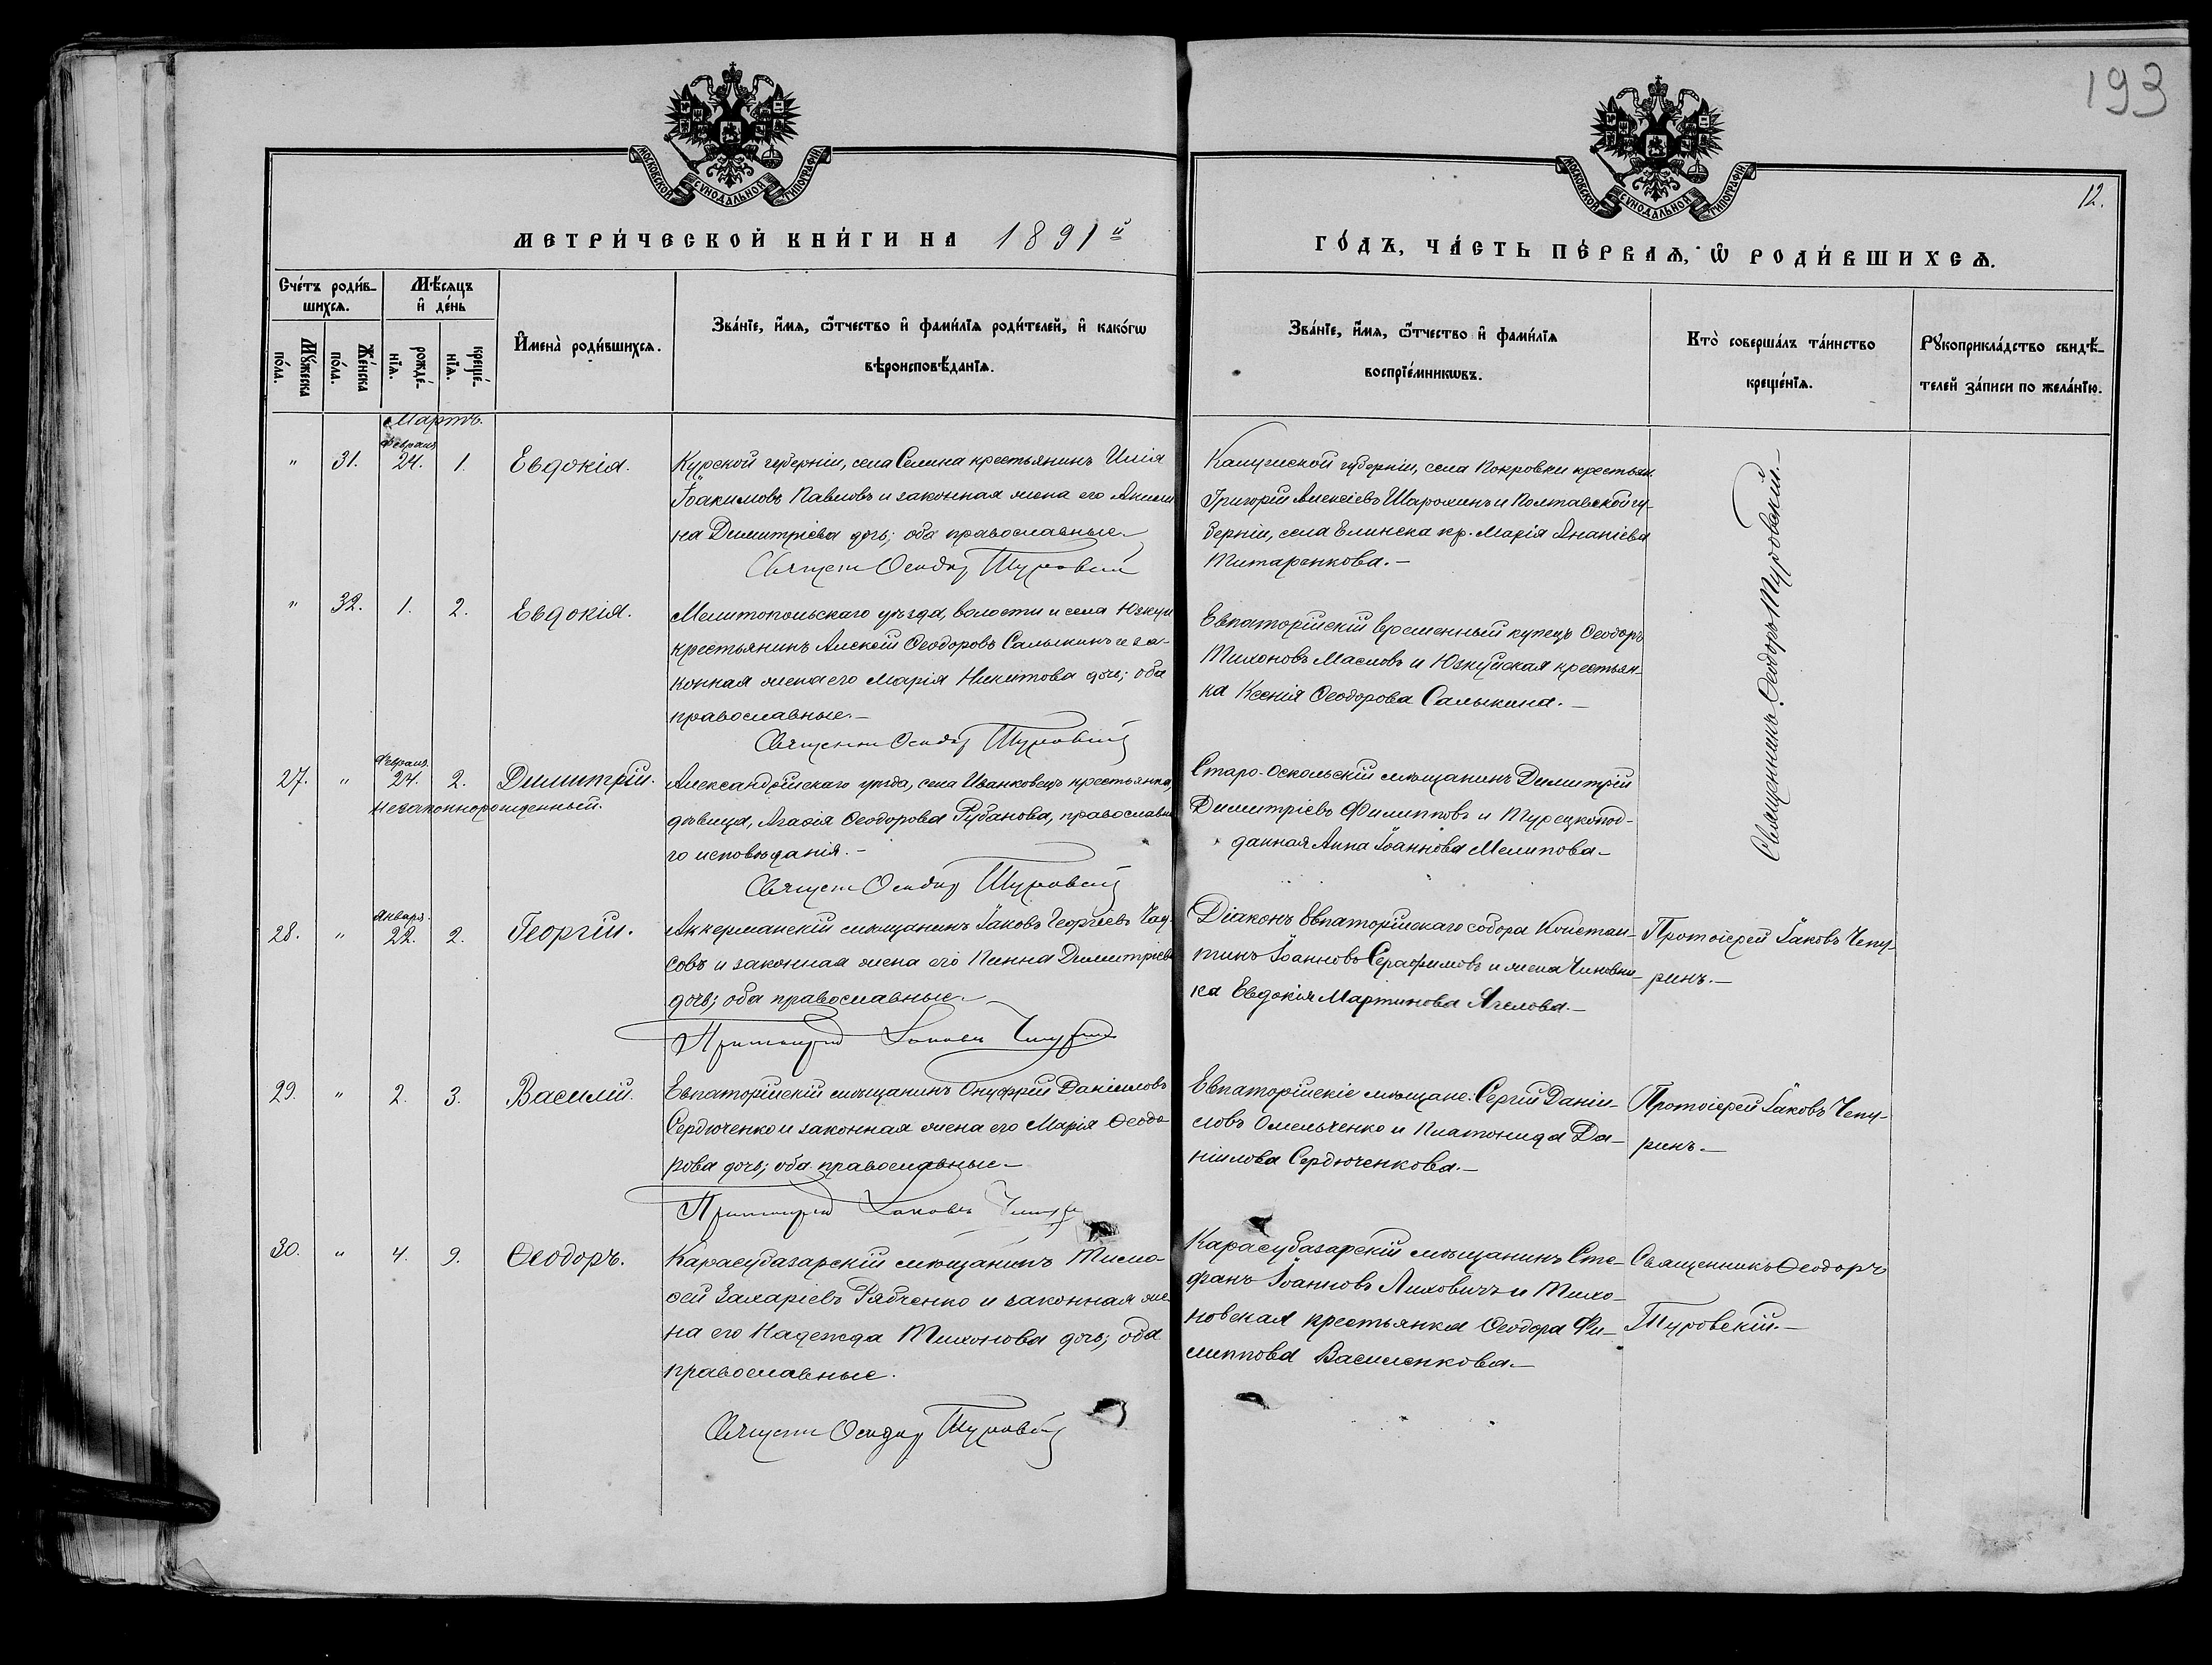 193
МОСКОВСКОЙ СѴНОДАЛЬНОЙ ТИПОГРАФІИ
МОСКОВСКОЙ СѴНОДАЛЬНОЙ ТИПОГРАФІИ
12.
МЕТРИ́ЧЕСКОЙ КНИ́ГИ НА 1891й
ГО́ДЪ, ЧА́СТЬ ПЕ́РВАѦ, Ѿ РОДИ́ВШИХСѦ.
Сче́тъ роди́в-
шихсѧ.
Мѣ́сяцъ
и҆ де́нь
Мꙋ́жеска по́ла.
Же́нска по́ла.
рожде́-
нїѧ.
креще́-
нїѧ.
И҆мена̀ роди́вшихсѧ.
Зва́нїе, и҆́мѧ, ѻ҆́тчество и҆ фами́лїѧ роди́телей, и҆ како́гѡ
вѣроисповѣ́данїѧ.
Зва́нїе, и҆́мѧ, ѻ҆́тчество и҆ фами́лїѧ
воспрїе́мникѡвъ.
Кто̀ соверша́лъ та́инство
креще́нїѧ.
Рꙋкоприкла́дство свидѣ́-
телей за́писи по жела́нїю.
Мартъ.
Феврал.
" 31. 24. 1. Евдокія.
Курской губерніи, села Селина крестьянинъ Илія
Іоакимовъ Павловъ и законная жена его Акили
на Димитріева дочь; оба православные
Священ Ѳеодор Туровскій
Калужской губерніи, села Покровки крестьян
Григорій Алексіевъ Шарохинъ и Полтавской гу-
берніи, села Елинска кр. Марія Ананіева
Титаренкова.-
Священникъ Ѳеодоръ Туровскій.-
" 32. 1. 2. Евдокія.
Мелитопольскаго уѣзда, волости и села Юзкуи
крестьянинъ Алексій Ѳеодоровъ Салыкинъ и за-
конная жена его Марія Никитова дочь; оба
православные.-
Священ Ѳеодор Туровскій
Евпаторійскій временный купецъ Ѳеодоръ
Тихоновъ Масловъ и Юзкуйская крестьян-
ка Ксенія Ѳеодорова Салыкина.-
Феврал.
27. " 24. 2. Димитрій.
Незаконнорожденный.
Александрійскаго уѣзда, села Иванковецъ крестьянка,
дѣвица, Агафія Ѳеодорова Рубанова, православна
го исповѣданія.-
Священ Ѳеодор Туровскій
Старо-Оскольскій мѣщанинъ Димитрій
Димитріевъ Филипповъ и Турецкопод-
данная Анна Іоаннова Мелипова-
Января.
28. " 22. 2. Георгій.
Аккерманскій мѣщанинъ Іаковъ Георгіевъ Чау-
совъ и законная жена его Пинна Димитріева
дочь; оба православные.-
Протоіерей Іаковъ Чепуринъ
Діаконъ Евпаторійскаго собора Констан-
тинъ Іоанновъ Серафимовъ и жена Чиновни-
ка Евдокія Мартинова Ягелова.-
Протоіерей Іаковъ Чепу-
ринъ.-
29. " 2. 3. Василій.
Евпаторійскій мѣщанинъ Онуфрій Даніиловъ
Сердюченко и законная жена его Марія Ѳеодо-
рова дочь; оба православные-
Протоіерей Іаковъ Чепуринъ
Евпаторійскіе мѣщане: Сергій Даніи-
ловъ Омельченко и Платонида Да-
ніилова Сердюченкова.-
Протоіерей Іаковъ Чепу-
ринъ.-
30. " 4. 9. Ѳеодоръ.
Карасубазарскій мѣщанинъ Тимо-
ѳей Захаріевъ Рябченко и законная же-
на его Надежда Тихонова дочь; оба
православные.
Священ Ѳеодор Туровскій
Карасубазарскій мѣщанинъ Сте-
фанъ Іоанновъ Лиховичъ и Тихо-
новская крестьянка Ѳеодора Фи-
липпова Василенкова.-
Священникъ Ѳеодоръ
Туровскій.-